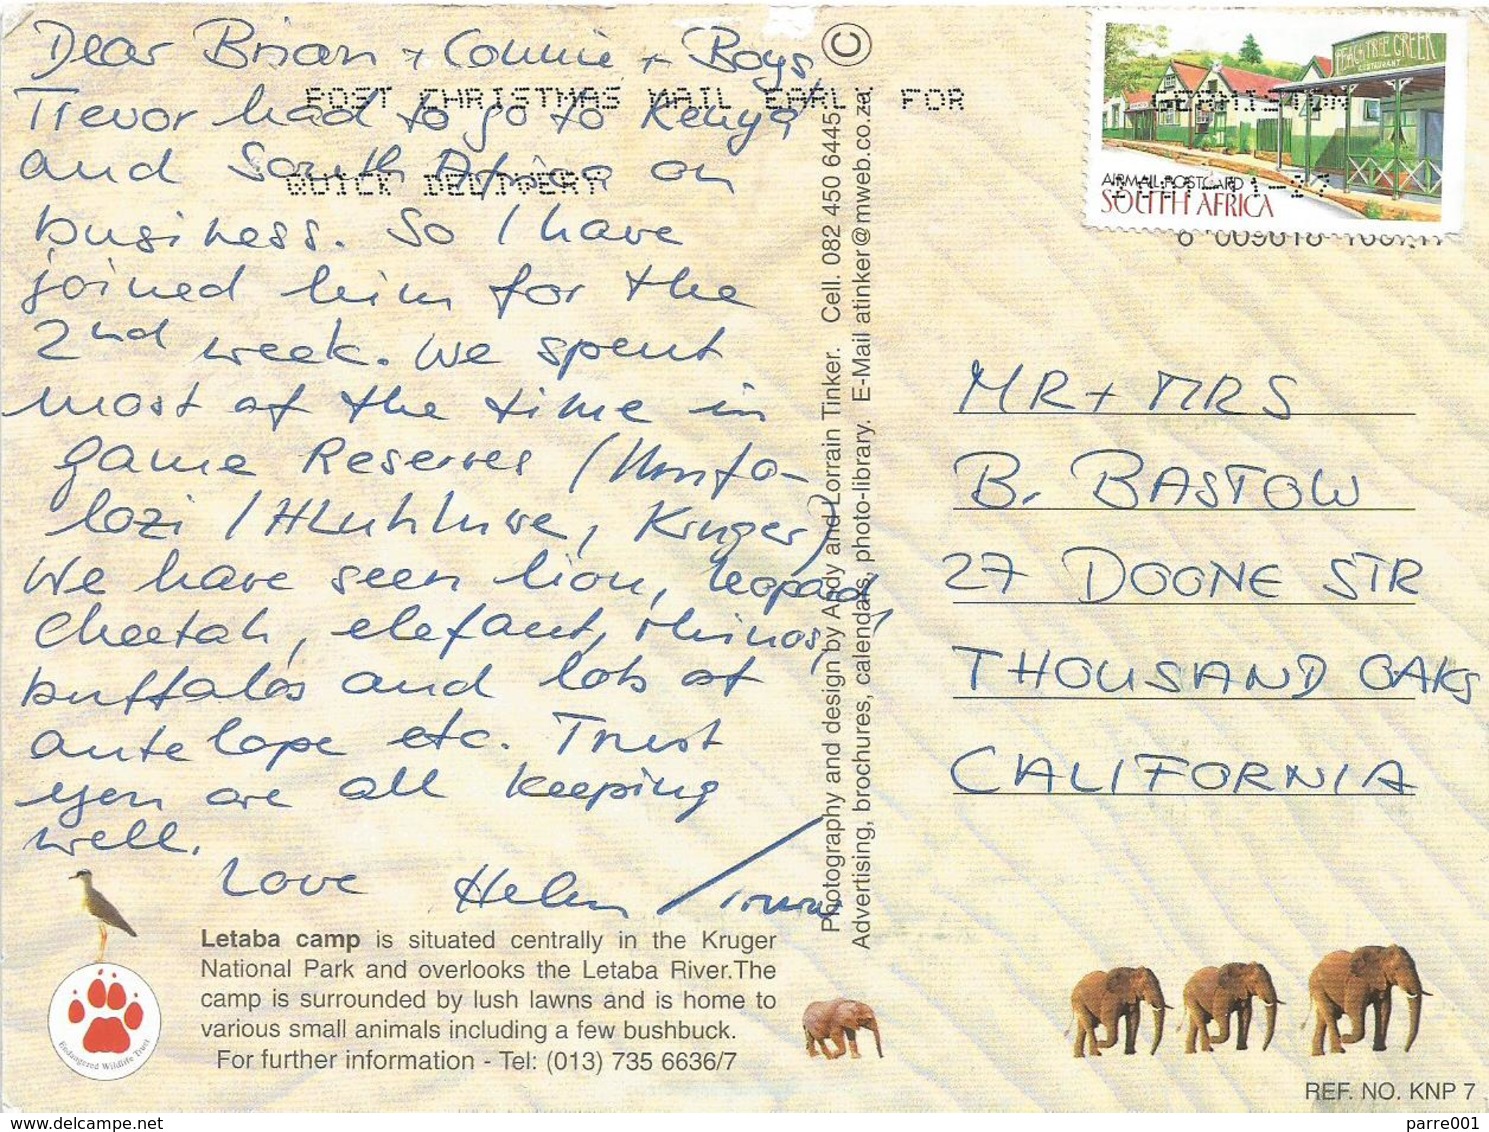 Dear Brian + Connie + Boys,
Trevor had to go to Kenya
and South Africa on
business. So I have
joined him for the
2nd week. We spent
most of the time in
game Reserves (Umfo-
lozi / Hluhluwe, Kruger)
We have seen lion, leopard,
cheetah, elefant, rhinos,
buffalos and lots of
antelope etc. Trust
you are all keeping
well.
Love Helen /
Letaba camp is situated centrally in the Kruger
National Park and overlooks the Letaba River.The
camp is surrounded by lush lawns and is home to
various small animals including a few bushbuck.
For further information - Tel: (013) 735 6636/7
Endangered Wildlife Trust
POST CHRISTMAS MAIL EARLY FOR
QUICK DELIVERY
©
Photography and design by Andy and Lorrain Tinker. Cell. 082 450 6445
Advertising, brochures, calendars, photo-library. E-Mail atinker@mweb.co.za
PEACH TREE CREEK
RESTAURANT
GERMISTON
AIRMAIL POSTCARD
SOUTH AFRICA
MR + MRS
B. BASTOW
27 DOONE STR
THOUSAND OAKS
CALIFORNIA
REF. NO. KNP 7
delcampe.net
parre001